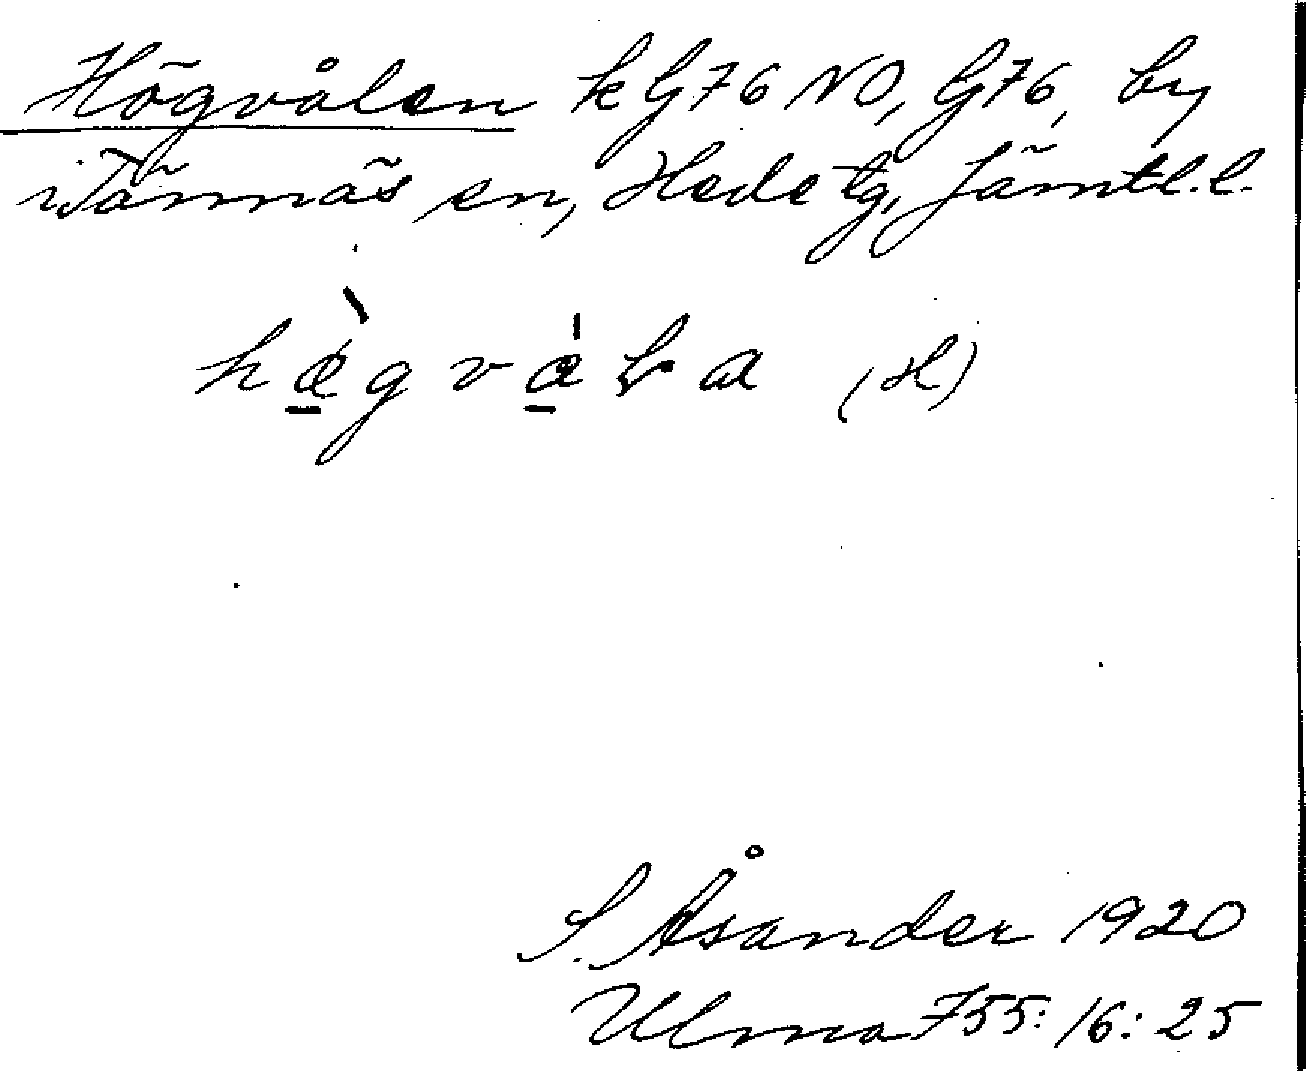 Högvålen k G76 NO, G76, by
i Tännäs sn, Hede tg, Jämtl. l.
(H)
S. Åsander 1920
Ulma 755: 16: 25